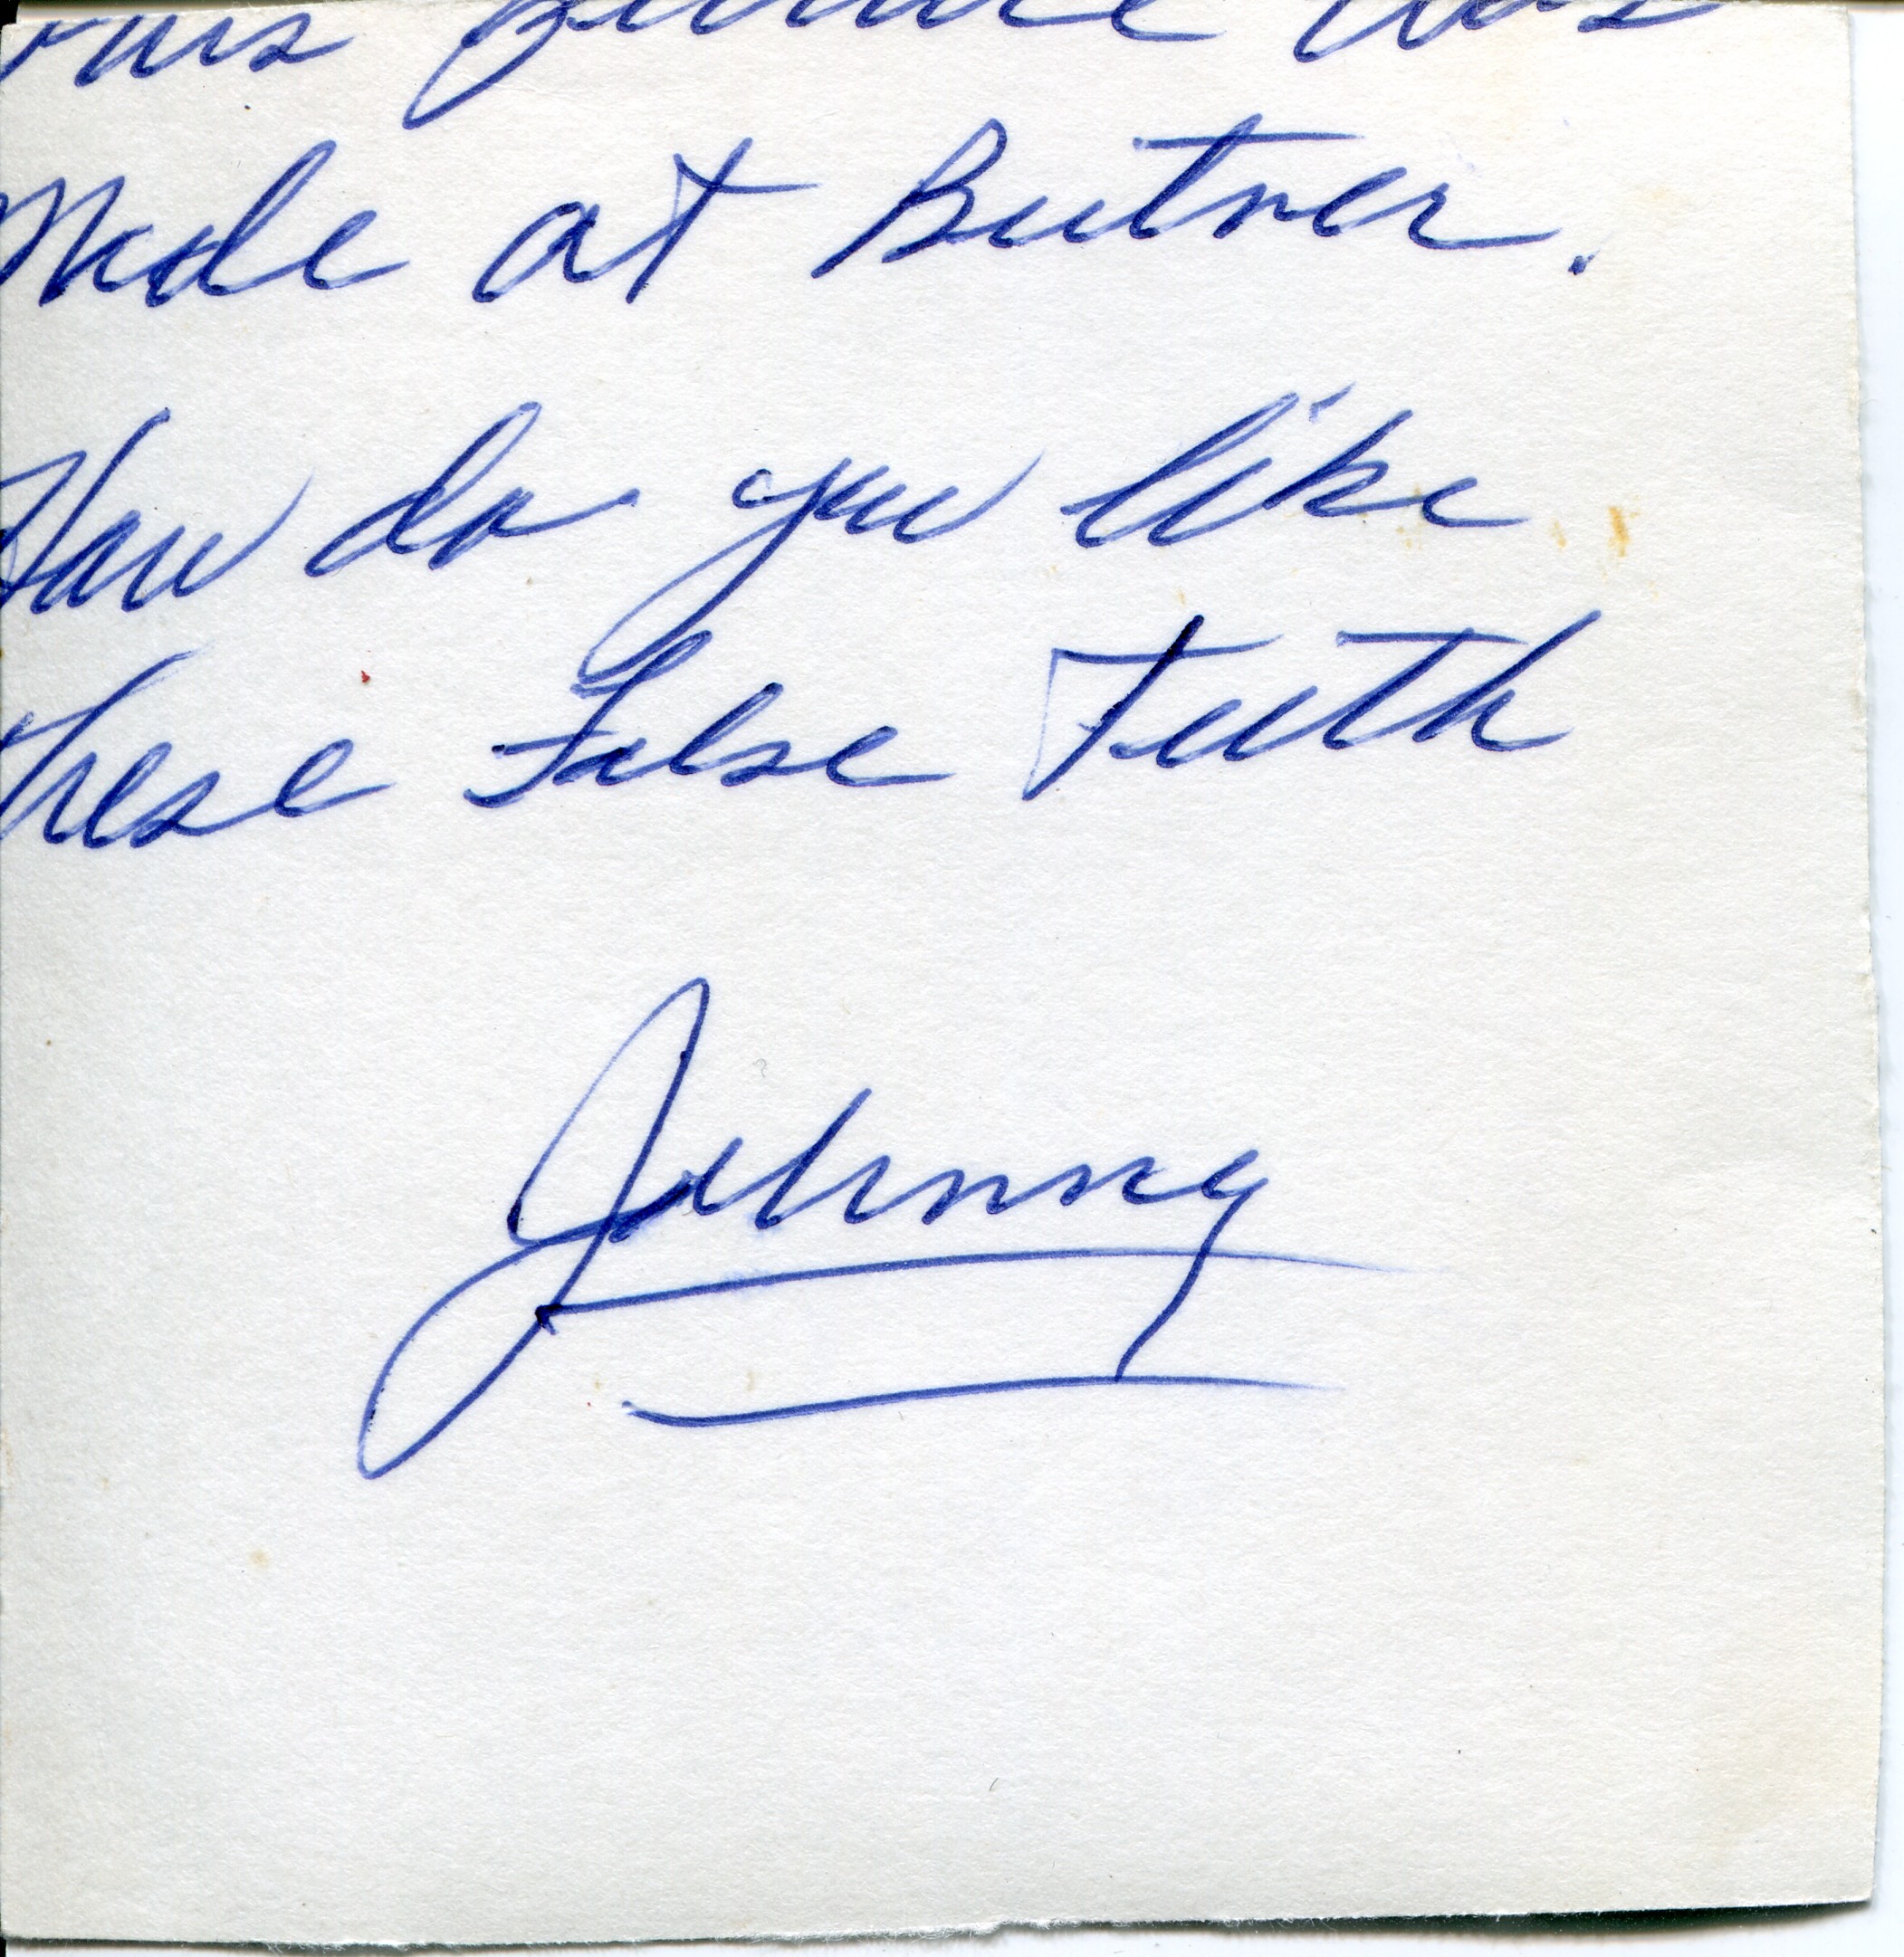 This picture was
Made at Butner.
How do you like
these False Teeth
Johnny